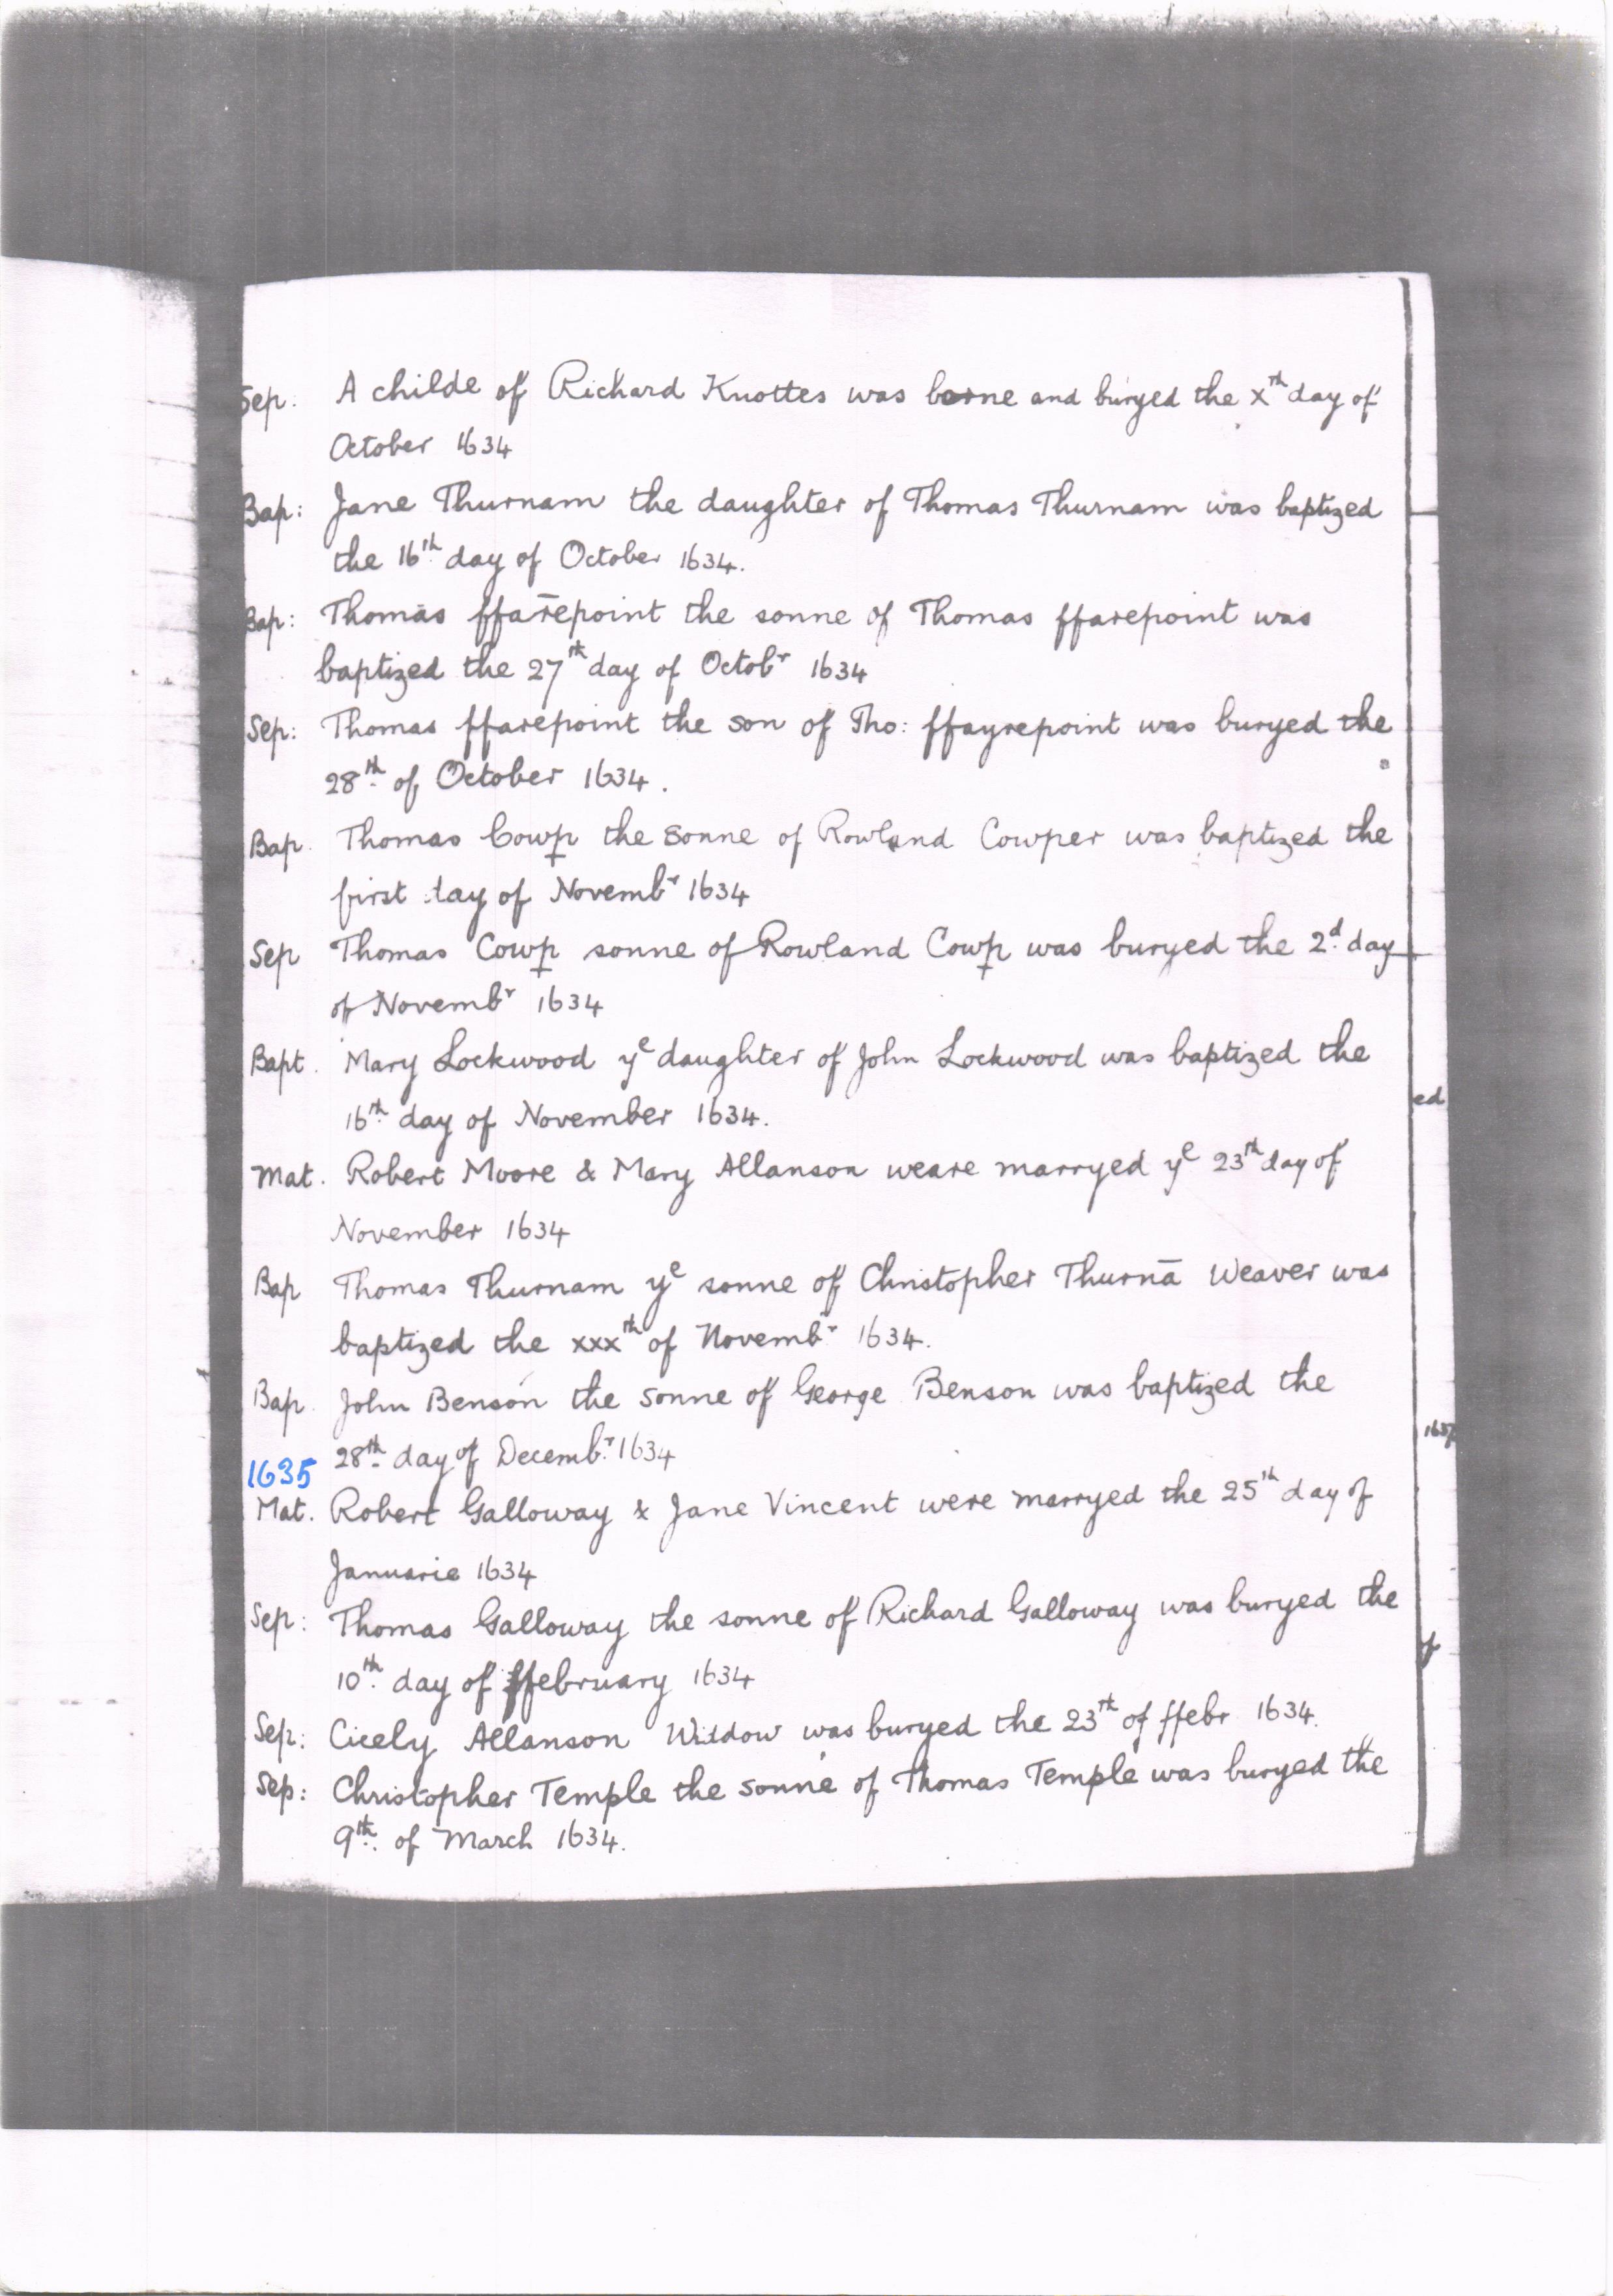 Sep: A childe of Richard Knottes was borne and buryed the xth day of
October 1634
Bap: Jane Thurnam the daughter of Thomas Thurnam was baptized
the 16th day of October 1634.
Bap: Thomas ffarepoint the sonne of Thomas ffarepoint was
baptized the 27th day of Octobr 1634
Sep: Thomas ffarepoint the son of Tho: ffayrepoint was buryed the
28th of October 1634.
Bap. Thomas Cowp the sonne of Rowland Cowper was baptized the
first day of Novembr 1634
Sep Thomas Cowp sonne of Rowland Cowp was buryed the 2d day
of Novembr 1634
Bapt. Mary Lockwood ye daughter of John Lockwood was baptized the
16th day of November 1634.
Mat. Robert Moore & Mary Allanson weare marryed ye 23th day of
November 1634
Bap Thomas Thurnam ye sonne of Christopher Thurnā Weaver was
baptized the xxxth of Novembr 1634.
Bap. John Benson the sonne of George Benson was baptized the
28th day of Decembr 1634
1635
Mat. Robert Galloway & Jane Vincent were marryed the 25th day of
Januarie 1634
Sep: Thomas Galloway the sonne of Richard Galloway was buryed the
10th day of ffebruary 1634
Sep: Cicely Allanson Widdow was buryed the 23th of ffebr 1634.
Sep: Christopher Temple the sonne of Thomas Temple was buryed the
9th of March 1634.
ed
of